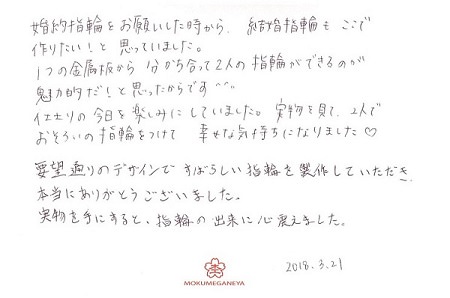 婚約指輪をお願いした時から、結婚指輪もここで
作りたい!と思っていました。
1つの金属板から分かち合って2人の指輪ができるのが
魅力的だ!と思ったからです^^
仕上りの今日を楽しみにしていました。実物を見て、2人で
おそろいの指輪をつけて 幸せな気持ちになりました♡
要望通りのデザインですばらしい指輪を製作していただき、
本当にありがとうございました。
実物を手にすると、指輪の出来に心震えました。
MOKUMEGANEYA
2018.3.21